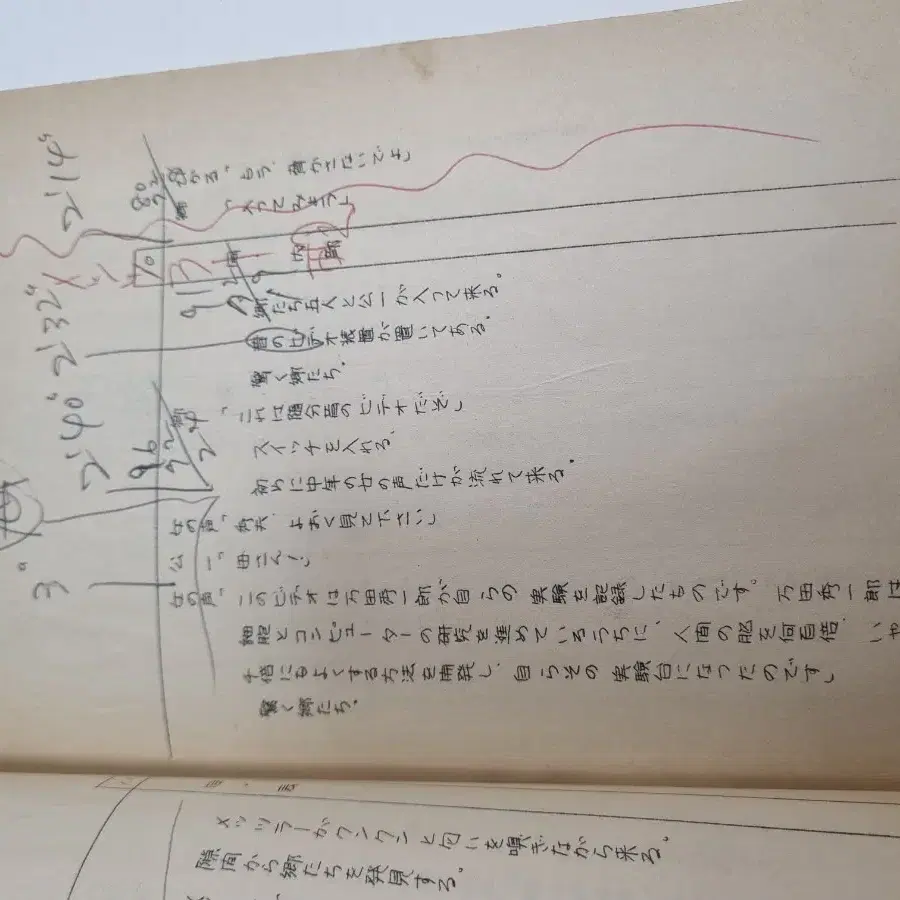 2'14"
「もう、脅かさないでよ」
「入ってみよう」
70
内部
2'32"
郷たち五人と公一が入って来る。
昔のビデオ装置が置いてある。
驚く郷たち。
2'40"
「これは随分昔のビデオだぞ」
スイッチを入れる。
初めに中年の女の声だけが流れて来る。
女の声「よおく見て下さい」
公一「母さん!」
3"
女の声「このビデオは万田秀一郎が自らの実験を記録したものです。万田秀一郎は
細胞とコンピューターの研究を進めているうちに、人間の脳を何百倍、いや
千倍にもよくする方法を開発し、自らその実験台になったのです」
驚く郷たち。
メッツラーがクンクンと匂いを嗅ぎながら来る。
隙間から郷たちを発見する。